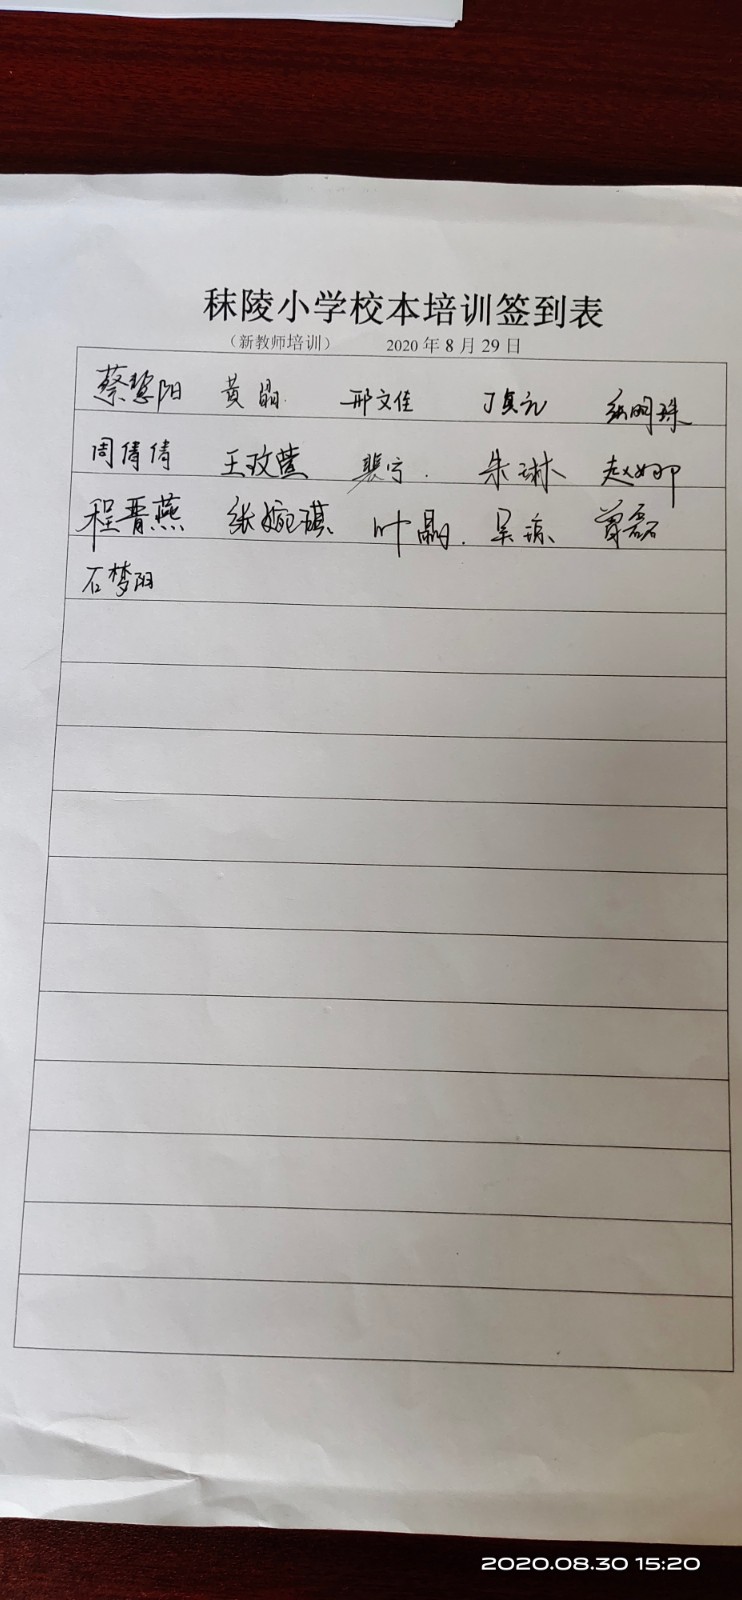 秣陵小学校本培训签到表
（新教师培训） 2020年8月29日
蔡慧阳 黄晶 邢文佳 丁真礼 张明珠
周倩倩 王玫莹 裴宁 朱琳 赵娜
程晋燕 张婉琪 叶晶 吴琼 曾磊
石梦阳
2020.08.30 15:20